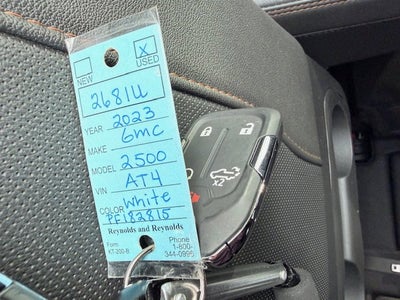 NEW
X
USED
2681U
YEAR 2023
MAKE GMC
MODEL 2500
VIN AT4
COLOR White
PF182815
Reynolds and Reynolds
Form
KT-200-B
Phone
1-800-
344-0996
x2